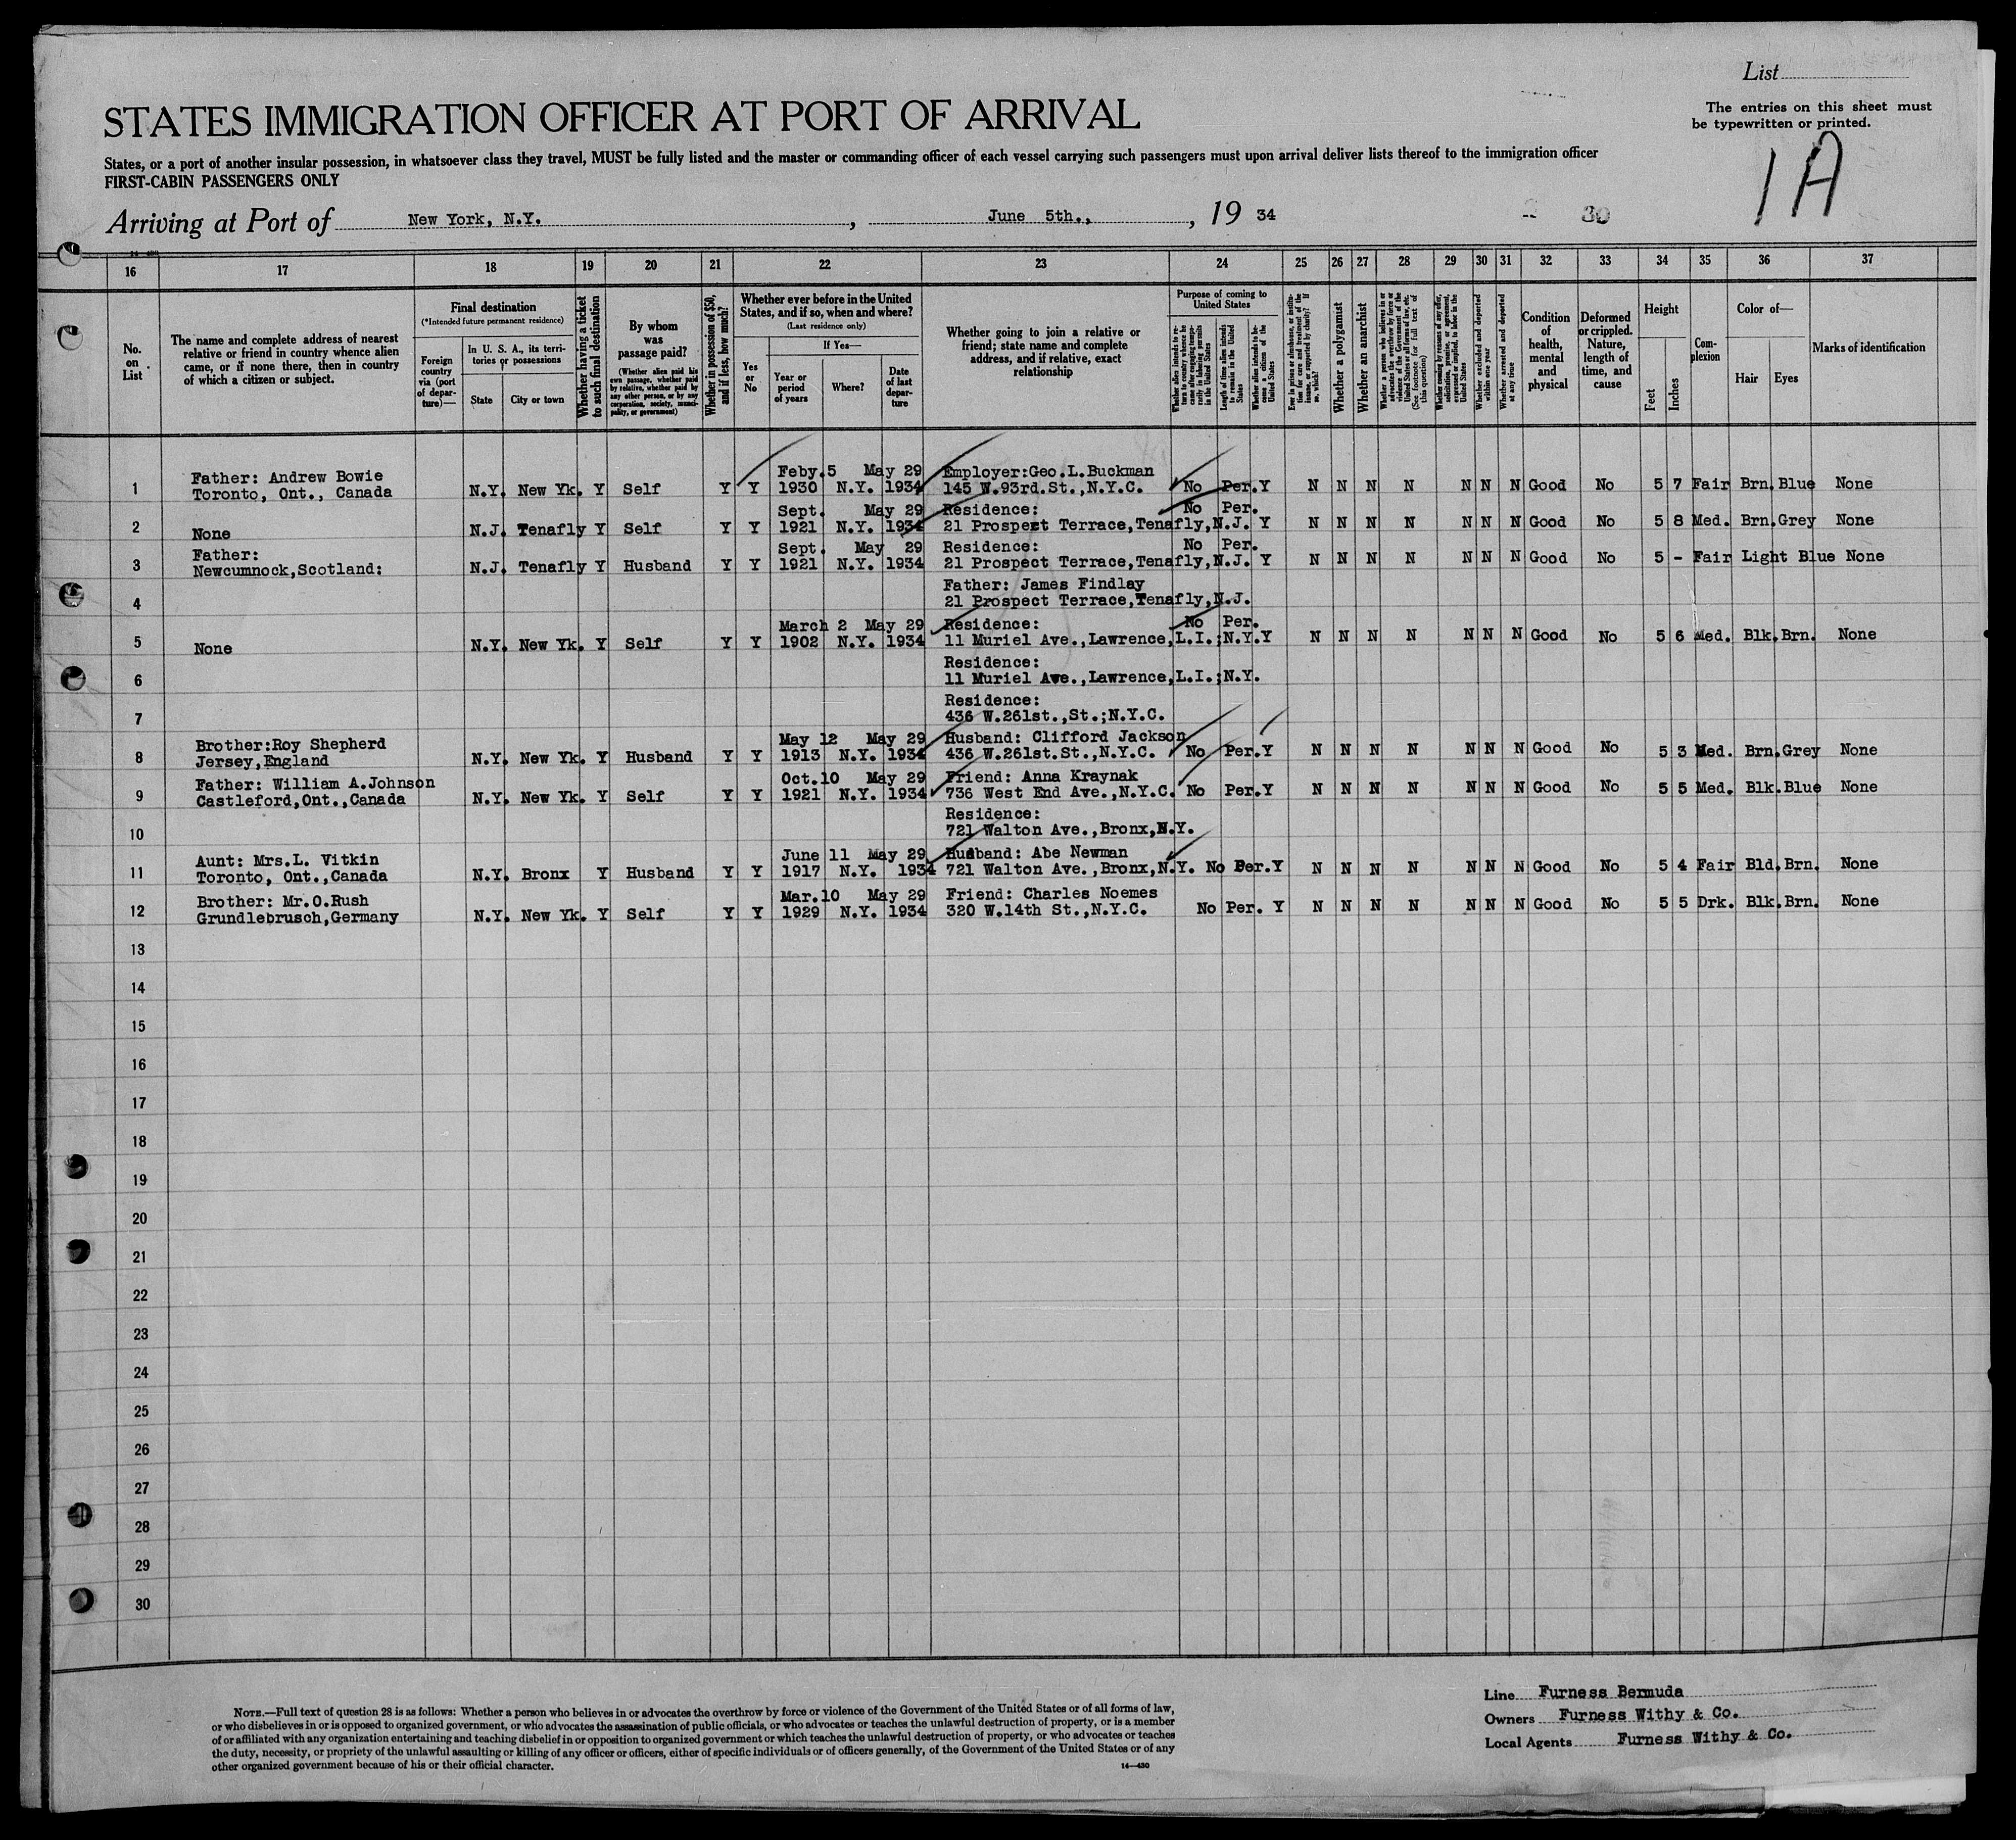 List
The entries on this sheet must
be typewritten or printed.
1A
STATES IMMIGRATION OFFICER AT PORT OF ARRIVAL
States, or a port of another insular possession, in whatsoever class they travel, MUST be fully listed and the master or commanding officer of each vessel carrying such passengers must upon arrival deliver lists thereof to the immigration officer
FIRST-CABIN PASSENGERS ONLY
Arriving at Port of New York, N.Y. , June 5th., , 19 34 30
16 17 18 19 20 21 22 23 24 25 26 27 28 29 30 31 32 33 34 35 36 37
No. on List
The name and complete address of nearest relative or friend in country whence alien came, or if none there, then in country of which a citizen or subject.
Final destination
(*Intended future permanent residence)
Foreign country via (port of departure)—
In U. S. A., its territories or possessions
State
City or town
Whether having a ticket to such final destination
By whom was passage paid?
(Whether alien paid his own passage, whether paid by relative, whether paid by any other person, or by any corporation, society, municipality, or government)
Whether in possession of $50, and if less, how much?
Whether ever before in the United States, and if so, when and where?
(Last residence only)
Yes or No
If Yes—
Year or period of years
Where?
Date of last departure
Whether going to join a relative or friend; state name and complete address, and if relative, exact relationship
Purpose of coming to United States
Whether alien intends to return to country whence he came after engaging temporarily in laboring pursuits in the United States
Length of time alien intends to remain in the United States
Whether alien intends to become a citizen of the United States
Ever in prison or almshouse, or institution for care and treatment of the insane, or supported by charity? If so, which?
Whether a polygamist
Whether an anarchist
Whether a person who believes in or advocates the overthrow by force or violence of the Government of the United States or all forms of law, etc. (See footnote for full text of this question)
Whether coming by reasons of any offer, solicitation, promise, or agreement, expressed or implied, to labor in the United States
Whether excluded and deported within one year
Whether arrested and deported at any time
Condition of health, mental and physical
Deformed or crippled. Nature, length of time, and cause
Height
Feet
Inches
Complexion
Color of—
Hair
Eyes
Marks of identification
Father: Andrew Bowie Feby.5 May 29 Employer:Geo.L.Buckman
1 Toronto, Ont., Canada N.Y. New Yk. Y Self Y Y 1930 N.Y. 1934 145 W.93rd.St.,N.Y.C. No Per.Y N N N N N N N Good No 5 7 Fair Brn.Blue None
Sept. May 29 Residence: No Per.
2 None N.J. Tenafly Y Self Y Y 1921 N.Y. 1934 21 Prospect Terrace,Tenafly,N.J. Y N N N N N N N Good No 5 8 Med. Brn.Grey None
Father: Sept. May 29 Residence: No Per.
3 Newcumnock,Scotland: N.J. Tenafly Y Husband Y Y 1921 N.Y. 1934 21 Prospect Terrace,Tenafly,N.J. Y N N N N N N N Good No 5 - Fair Light Blue None
Father: James Findlay
4 21 Prospect Terrace,Tenafly,N.J.
March 2 May 29 Residence: No Per.
5 None N.Y. New Yk. Y Self Y Y 1902 N.Y. 1934 11 Muriel Ave.,Lawrence,L.I.;N.Y.Y N N N N N N N Good No 5 6 Med. Blk.Brn. None
Residence:
6 11 Muriel Ave.,Lawrence,L.I.;N.Y.
Residence:
7 436 W.261st.,St.;N.Y.C.
Brother:Roy Shepherd May 12 May 29 Husband: Clifford Jackson
8 Jersey,England N.Y. New Yk. Y Husband Y Y 1913 N.Y. 1934 436 W.261st.St.,N.Y.C. No Per.Y N N N N N N N Good No 5 3 Med. Brn.Grey None
Father: William A.Johnson Oct.10 May 29 Friend: Anna Kraynak
9 Castleford,Ont.,Canada N.Y. New Yk. Y Self Y Y 1921 N.Y. 1934 736 West End Ave.,N.Y.C. No Per.Y N N N N N N N Good No 5 5 Med. Blk.Blue None
Residence:
10 721 Walton Ave.,Bronx,N.Y.
Aunt: Mrs.L. Vitkin June 11 May 29 Husband: Abe Newman
11 Toronto, Ont.,Canada N.Y. Bronx Y Husband Y Y 1917 N.Y. 1934 721 Walton Ave.,Bronx,N.Y. No Per.Y N N N N N N N Good No 5 4 Fair Bld.Brn. None
Brother: Mr.O.Rush Mar.10 May 29 Friend: Charles Noemes
12 Grundlebrusch,Germany N.Y. New Yk. Y Self Y Y 1929 N.Y. 1934 320 W.14th St.,N.Y.C. No Per. Y N N N N N N N Good No 5 5 Drk. Blk.Brn. None
13
14
15
16
17
18
19
20
21
22
23
24
25
26
27
28
29
30
NOTE.—Full text of question 28 is as follows: Whether a person who believes in or advocates the overthrow by force or violence of the Government of the United States or of all forms of law,
or who disbelieves in or is opposed to organized government, or who advocates the assassination of public officials, or who advocates or teaches the unlawful destruction of property, or is a member
of or affiliated with any organization entertaining and teaching disbelief in or opposition to organized government or which teaches the unlawful destruction of property, or who advocates or teaches
the duty, necessity, or propriety of the unlawful assaulting or killing of any officer or officers, either of specific individuals or of officers generally, of the Government of the United States or of any
other organized government because of his or their official character.
14—430
Line Furness Bermuda
Owners Furness Withy & Co.
Local Agents Furness Withy & Co.